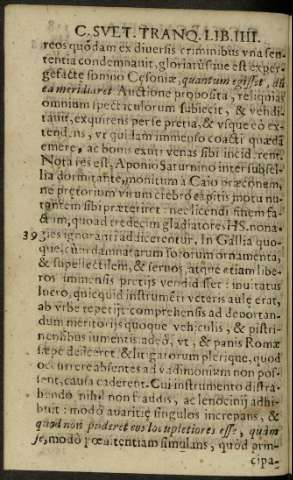 C. SVET. TRANQ. LIB. IIII.
reos quódam ex diversis criminibus vna sen-
tentia condemnavit, gloriatúsque est experge-
gefactę somno Cęsoniæ, quantum egisset, dū
ea meridiaret. Auctione proposita, reliquias
omnium spectaculorum subiecit, & vendi-
tavit, exquirens per se pretia, & vsque eò ex-
tendens, vt quidam immenso coacti quædā
emere, ac bonis exuti venas sibi inciderent.
Nota res est, Aponio Saturnino inter subsel-
lia dormitante, monitum a Caio præconem,
ne prętorium virum crebro capitis motu nu-
tantem sibi præteriret: nec licendi finem fa-
ctum, quoad tredecim gladiatores HS. nona-
39 gies ignoranti addicerentur. In Gallia quo-
que, cùm damnatarum sororum ornamenta,
& supellectilem, & servos, atque etiam libe-
ros immensis pretijs vendidisset: invitatus
lucro, quicquid instrumēti veteris aulę erat,
ab vrbe repetijt, comprehensis ad deportan-
dum meritorijs quoque vehiculis, & pistri-
nensibus iumentis adeò, vt, & panis Romæ
sæpe deficeret, & litigatorum plerique, quod
occurrere absentes ad vadimonium non pos-
sent, causa caderent. Cui instrumento distra-
hendo nihil non fraudis, ac lenocinij adhi-
buit: modò avaritię singulos increpans, &
quod non puderet eos locupletiores esse, quàm
se, modò pœnitentiam simulans, quòd prin-
cipa-